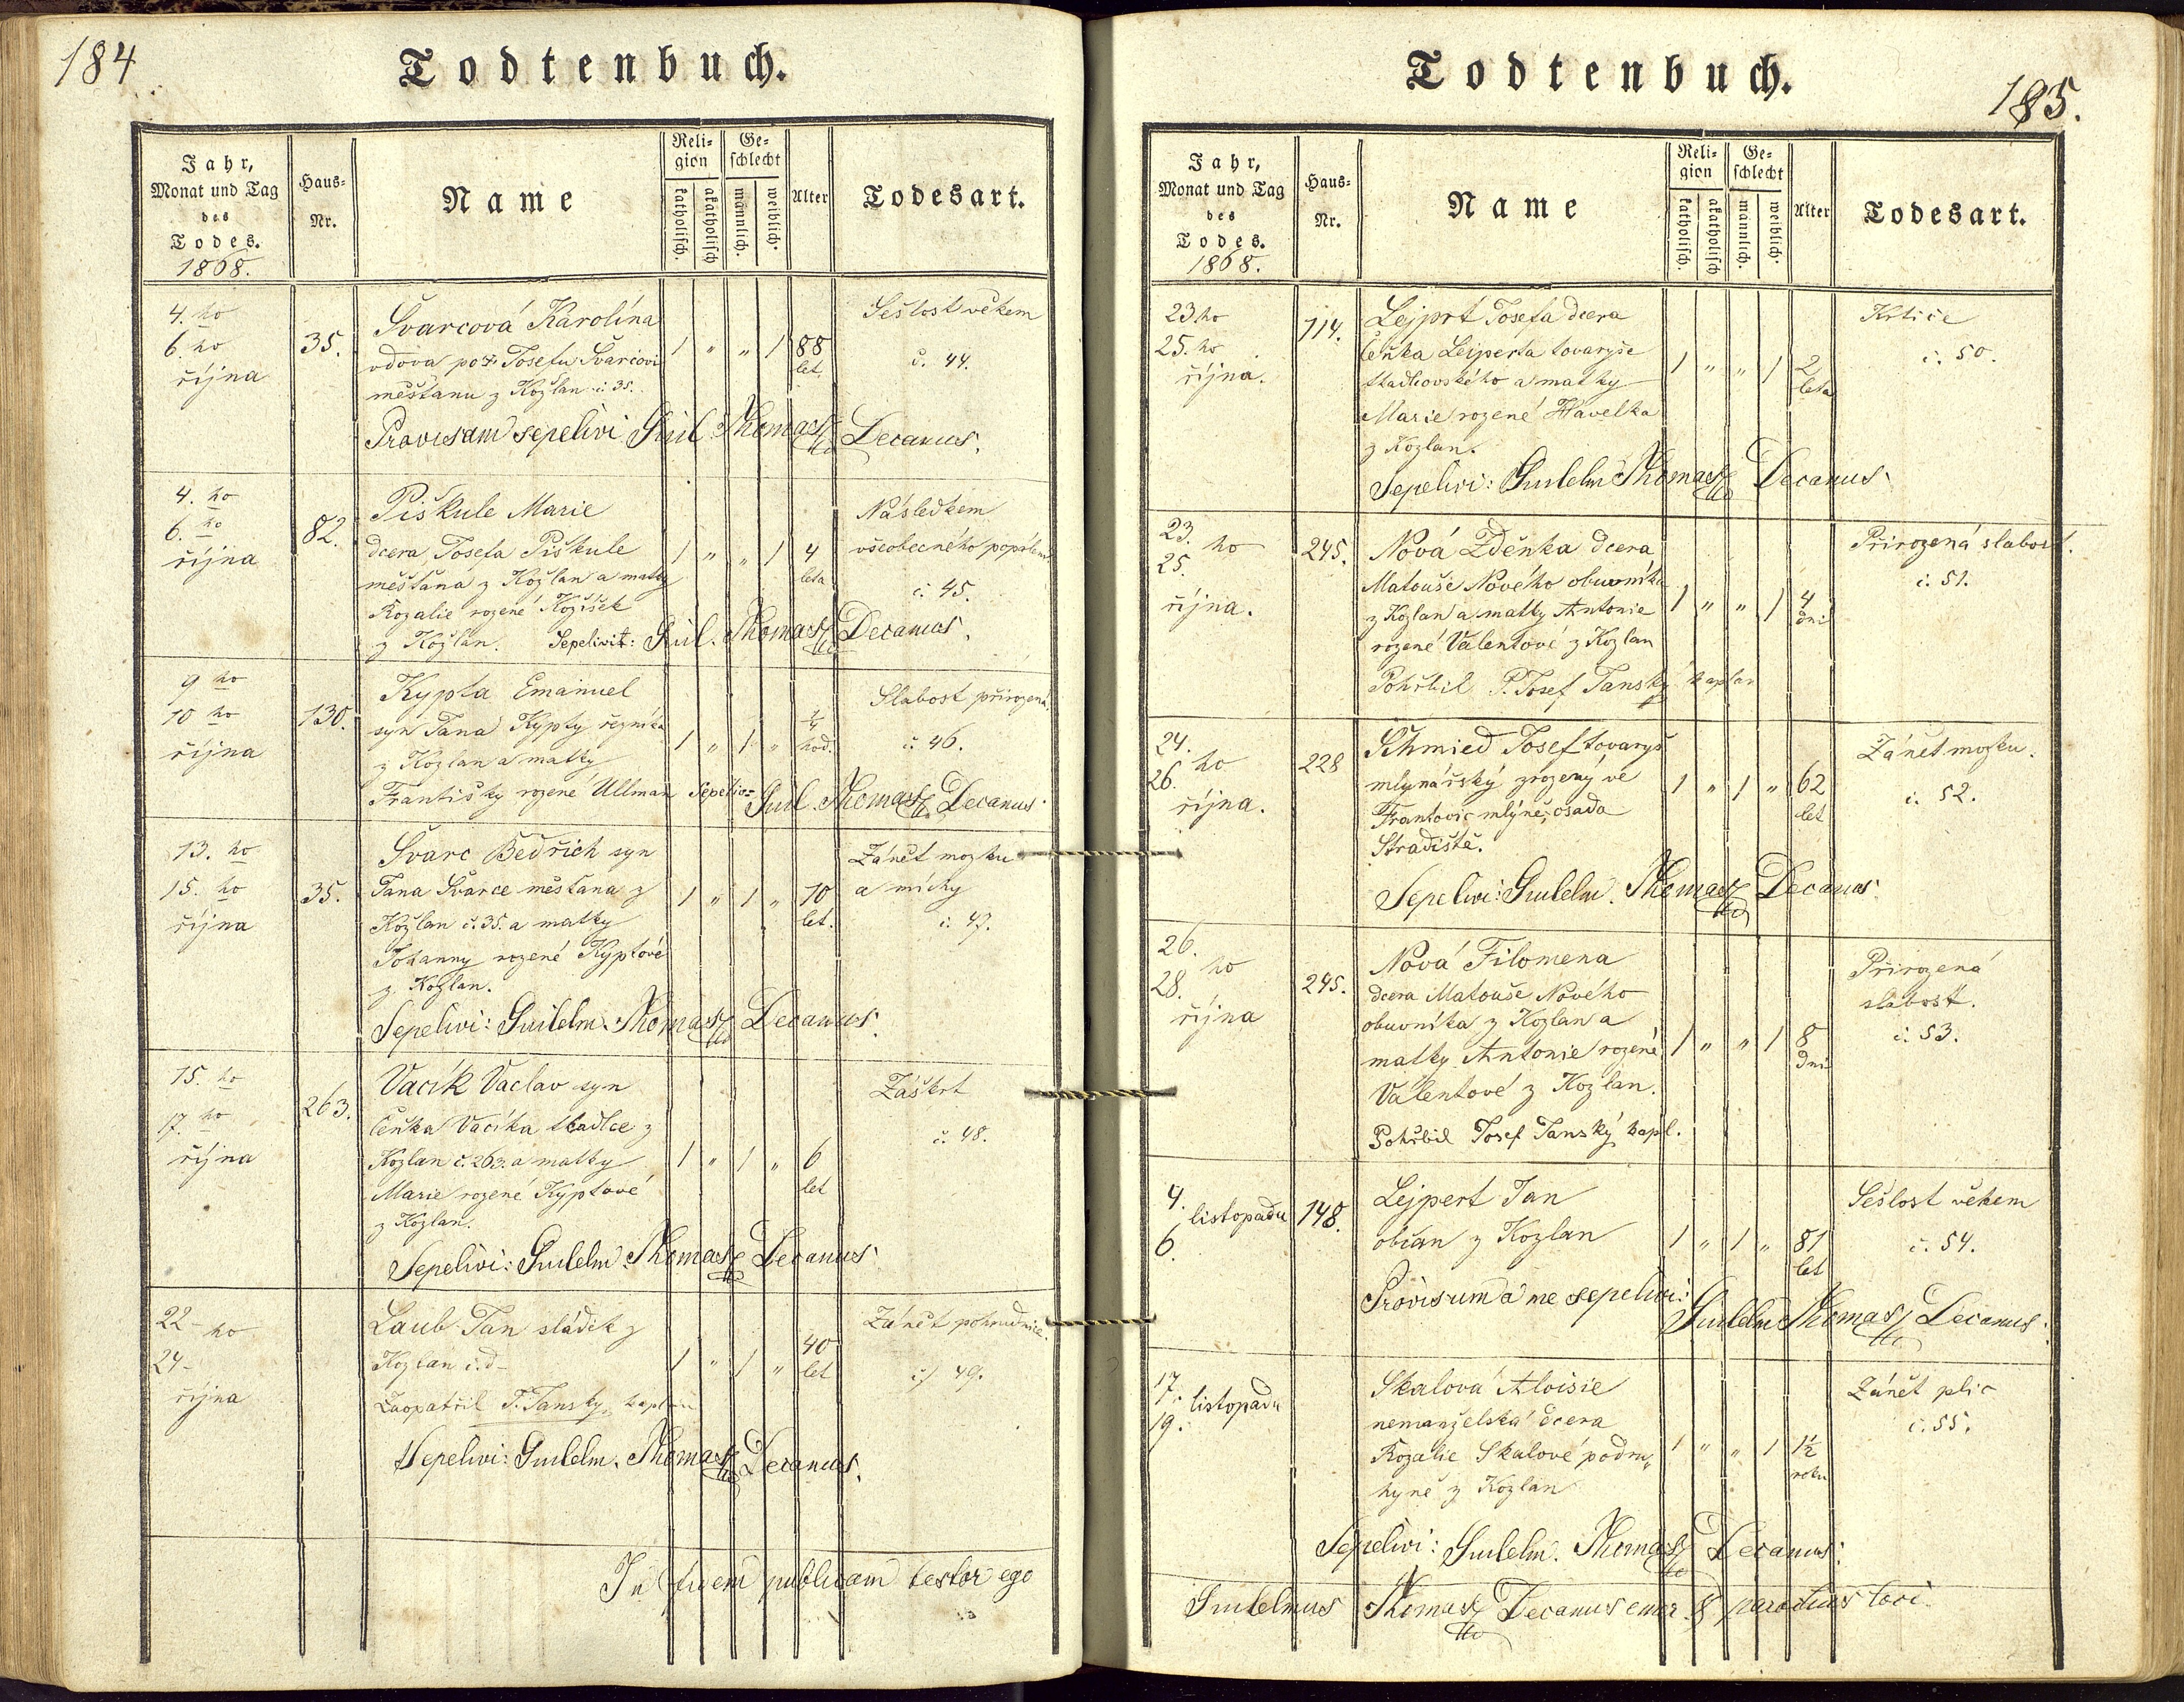 184
Todtenbuch.
Jahr,
Monat und Tag
des
Todes.
1868.
Haus-
Nr.
Name
Reli-
gion
katholisch.
akatholisch
Ge-
schlecht
männlich.
weiblich.
Alter
Todesart.
4. ho
6. ho
října
35.
Švarcová Karolína
vdova po Josefu Švarcovi
měšťanu z Kožlan č. 35.
1 " " 1 88
let.
Sešlost věkem
č. 44.
Provisam sepelivi Guil. Thomasz Decanus.
4. ho
6. ho
října
82.
Piškule Marie
dcera Josefa Piškule
měšťana z Kožlan a matky
Rozalie rozené Kožíšek
z Kožlan. Sepelivit: Guil. Thomasz Decanus.
1 " " 1 4
leta
Následkem
všeobecného popálení
č. 45.
9 ho
10 ho
října
130.
Kypta Emanuel
syn Jana Kypty řezníka
z Kozlan a matky
Františky rozené Ullman
1 " 1 "
hod.
Slabost přirozená.
č. 46.
Guil. Thomasz Decanus.
13. ho
15. ho
října
35.
Švarc Bedřich syn
Jana Švarce měšťana z
Kozlan č. 35. a matky
Johanny rozené Kyptové
z Kozlan.
1 " 1 " 10
let.
Zánět mozku
a míchy
č. 47.
Sepelivi: Guilelm. Thomasz Decanus.
15. ho
17. ho
října
263.
Vacík Václav syn
Čeňka Vacíka tkadlce z
Kozlan č. 263. a matky
Marie rozené Kyptové
z Kozlan.
1 " 1 " 6
let
Záškrt
č. 48.
Sepelivi: Guilelm. Thomasz Decanus.
22 - ho
24 -
října
Laub Jan sládek z
Kozlan č. d -
1 " 1 " 40
let
Zánět pohrudnice.
č. 49.
Zaopatřil J. Janský, kaplan
Sepelivi: Guilelm. Thomasz Decanus.
In fidem publicam testor ego
185.
Todtenbuch.
Jahr,
Monat und Tag
des
Todes.
1868.
Haus-
Nr.
Name
Reli-
gion
katholisch.
akatholisch
Ge-
schlecht
männlich.
weiblich.
Alter
Todesart.
23. ho
25. ho
října.
114.
Lejprt Josefa dcera
Čeňka Leiperta tovaryše
tkadlcovského a matky
Marie rozené Havelka
z Kozlan.
1 " " 1 2
leta
Krtice
č. 50.
Sepelivi: Guilelm Thomasz Decanus.
23. ho
25.
října.
245.
Nová Zděnka dcera
Matouše Nového obuvníka
z Kozlan a matky Antonie
rozené Valentové z Kozlan
1 " " 1 4
dni
Přirozená slabost.
č. 51.
Pohřbil P. Josef Janský kaplan
24. ho
26.
října.
228
Schmied Josef tovaryš
mlynářský zrozený ve
Frantovic mlýně, osada
Stradiště.
1 " 1 " 62
let
Zánět mozku.
č. 52.
Sepelivi: Guilelm. Thomasz Decanus.
26. ho
28.
října
245.
Nová Filomena
dcera Matouše Nového
obuvníka z Kozlan a
matky Antonie rozené
Valentové z Kozlan.
1 " " 1 8
dní
Přirozená
slabost.
č. 53.
Pohřbil Josef Janský kapl.
4. listopadu
6.
148.
Lejpert Jan
občan z Kozlan
1 " 1 " 81
let
Sešlost věkem
č. 54.
Provisum a me sepelivi:
Guilelm Thomasz Decanus.
17. listopadu
19.
Skalová Aloisie
nemanželská dcera
Rozalie Skalové podru„
hyně z Kozlan
1 " " 1 1½
roku
Zánět plic
č. 55.
Sepelivi: Guilelm. Thomasz Decanus.
Guilelmus Thomasz Decanus emer. & parochus loci.